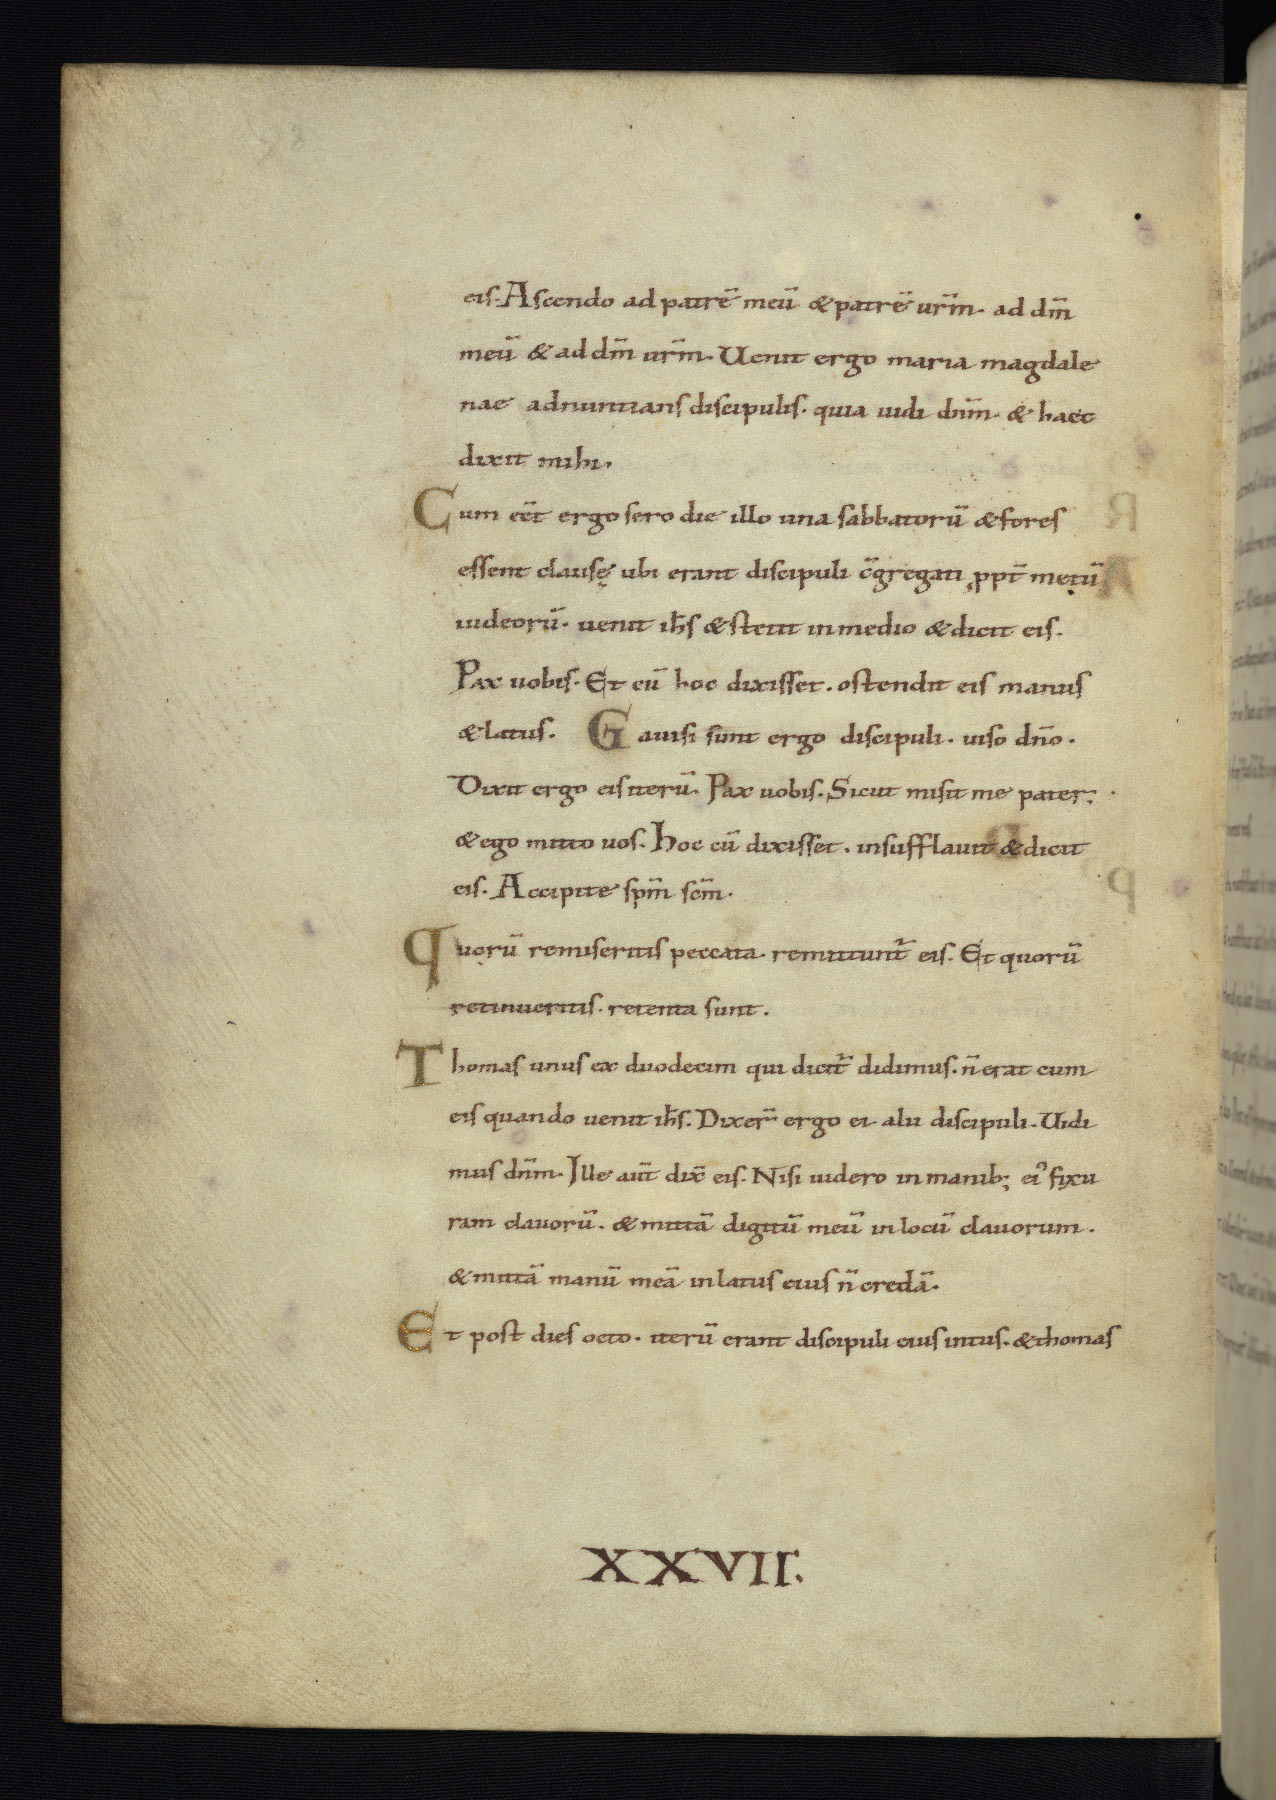 eis. Ascendo ad patrē meū & patrē ur̄m. ad dm̄
meū & ad dm̄ ur̄m. Uenit ergo maria magdale
nae adnuntians discipulis. quia uidi dnm̄. & haec
dixit mihi.
Cum eēt ergo sero die illo una sabbatorū & fores
essent clausę ubi erant discipuli c̄gregati ꝓpt̄ metū
iudeorū. uenit ih̄s & stetit in medio & dicit eis.
Pax uobis. Et cū hoc dixisset. ostendit eis manus
& latus. Gauisi sunt ergo discipuli. uiso dn̄o.
Dixit ergo eis iterū. Pax uobis. Sicut misit me pater;
& ego mitto uos. Hoc cū dixisset. insufflauit & dicit
eis. Accipite spm̄ scm̄.
Quorū remiseritis peccata. remittunt᷑ eis. Et quorū
retinueritis. retenta sunt.
Thomas unus ex duodecim qui dicit᷑ didimus. n̄ erat cum
eis quando uenit ih̄s. Dixer̄ ergo ei alii discipuli. Uidi
mus dnm̄. Ille aut̄ dix̄ eis. Nisi uidero in manib; ei᾽ fixu
ram clauorū. & mittā digitū meū in locū clauorum.
& mittā manū meā in latus eius n̄ credā.
Et post dies octo. iterū erant discipuli eius intus. & thomas
XXVII.